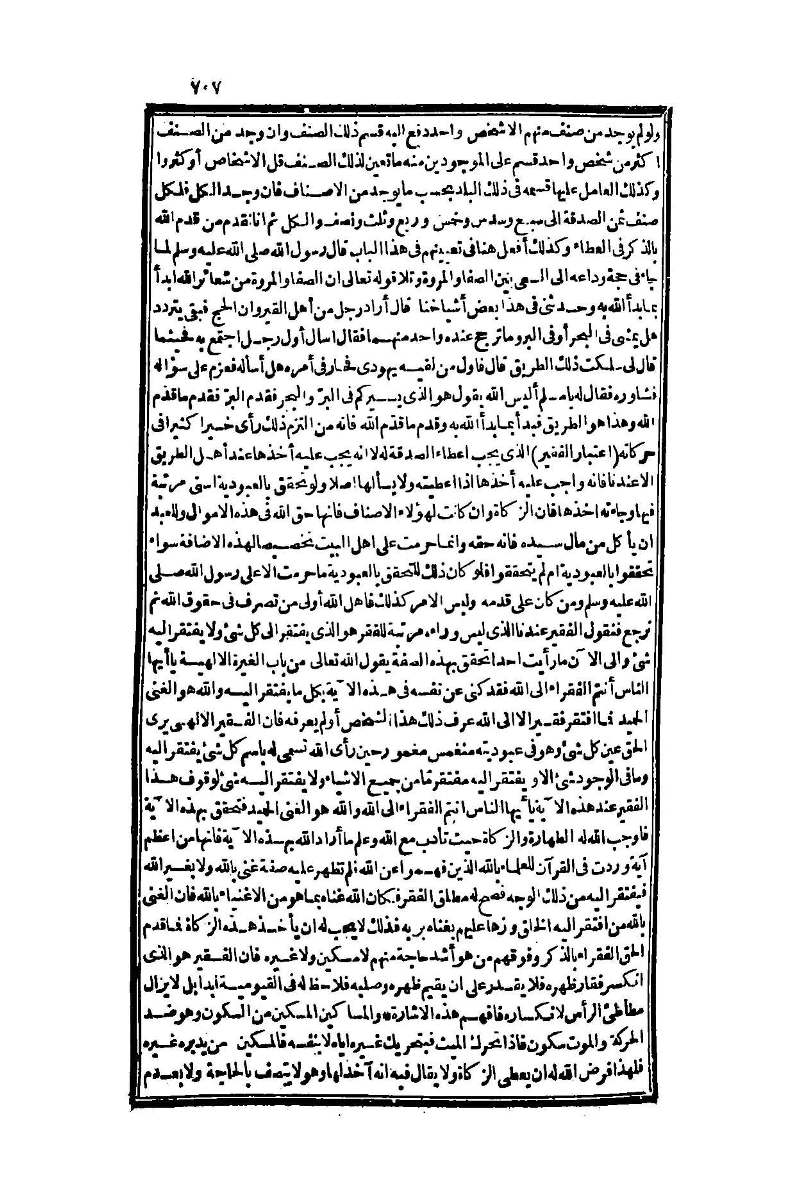 ٧٠٧
ولو لم يوجد من صنف منهم الا شخص واحد دفع اليه قسم ذلك الصنف وان وجد من الصنف
اكثر من شخص واحد قسم على الموجودين منه ما تعين لذلك الصنف قل الاشخاص أو كثروا
وكذلك العامل عليها قسمه فى ذلك البلد بحسب ما يوجد من الاصناف فان وجد الكل فلكل
صنف ثمن الصدقة الى سبع وسدس وخمس وربع وثلث ونصف والكل ثم انا نقدم من قدم الله
بالذكر فى العطاء وكذلك أفعل هنا فى تعيينهم فى هذا الباب قال رسول الله صلى الله عليه وسلم لما
جاء فى حجة وداعه الى السعى بين الصفا والمروة وتلا قوله تعالى ان الصفا والمروة من شعائر الله ابدأ
بما بدأ الله به وحدثنى فى هذا بعض أشياخنا قال أراد رجل من أهل القيروان الحج فبقى يتردد
هل يمشى فى البحر أو فى البر وما ترجح عنده واحد منهما فقال اسال أول رجل اجتمع به فحيثما
قال لى سلكت ذلك الطريق قال فاول من لقيه يهودى فحار فى أمره هل أسأله فعزم على سؤاله
فشاوره فقال له يا مسلم أليس الله يقول هو الذى يسيركم فى البر والبحر فقدم البر فقدم ما قدم
الله وهذا هو الطريق فبدأ بما بدأ الله به وقدم ما قدم الله فانه من التزم ذلك رأى خيرا كثيرا فى
حركاته (اعتبار الفقير) الذى يجب اعطاء الصدقة له لا انه يجب عليه أخذها عند أهل الطريق
الا عندنا فانه واجب عليه أخذها اذا اعطيته ولا يسألها اصلا ولو تحقق بالعبودية اسنى مرتبة
فيها وجاءته اخذها فان الزكاة وان كانت لهؤلاء الاصناف فانها حق الله فى هذه الاموال وللعبد
ان يأكل من مال سيده فانه حقه وانما حرمت على اهل البيت تخصيصا لهذه الاضافة سواء
تحققوا بالعبودية ام لم يتحققوا فلو كان ذلك للتحقق بالعبودية ما حرمت الا على رسول الله صلى
الله عليه وسلم ومن كان على قدمه وليس الامر كذلك فاهل الله أولى من تصرف فى حقوق الله ثم
نرجع فنقول الفقير عندنا الذى ليس وراءه مرتبة للفقر هو الذى يفتقر الى كل شئ ولا يفتقر اليه
شئ والى الآن ما رأيت احدا تحقق بهذه الصفة يقول الله تعالى من باب الغيرة الالهية يا أيها
الناس أنتم الفقراء الى الله فقد كنى عن نفسه فى هذه الآية بكل ما يفتقر اليه والله هو الغنى
الحميد فما افتقر فقير الا الى الله عرف ذلك هذا الشخص أو لم يعرفه فان الفقير الالهى يرى
الحق عين كل شئ وهو فى عبوديته منغمس مغمور حين رأى الله تسمى له باسم كل شئ يفتقر اليه
وما فى الوجود شئ الا ويفتقر اليه مفتقر ما من جميع الاشياء ولا يفتقر اليه شئ لوقوف هذا
الفقير عند هذه الآية يا أيها الناس انتم الفقراء الى الله والله هو الغنى الحميد فتحقق بهذه الآية
فاوجب الله له الطهارة والزكاة حيث تأدب مع الله وعلم ما أراد الله بهذه الآية فانها من اعظم
آية وردت فى القرآن للعلماء بالله الذين فهموا عن الله فلم تظهر عليه صفة غنى بالله ولا بغير الله
فيفتقر اليه من ذلك الوجه فصح له مطلق الفقر فكان الله غناه بما هو من الاغنياء بالله فان الغنى
بالله من افتقر اليه الخلق وزها عليهم بغناه بربه فذلك لا يجب له ان يأخذ هذه الزكاة فما قدم
الحق الفقراء بالذكر وفوقهم من هو أشد حاجة منهم لا مسكين ولا غيره فان الفقير هو الذى
انكسر فقار ظهره فلا يقدر على ان يقيم ظهره وصلبه فلا حظ له فى القيومية أبدا بل لا يزال
مطأطئ الرأس لانكساره فافهم هذه الاشارة * والمساكين المسكين من السكون وهو ضد
الحركة والموت سكون فاذا تحرك الميت فبتحريك غيره اياه لا بنفسه فالمسكين من يدبره غيره
فلهذا فرض الله له ان يعطى الزكاة ولا يقال فيه انه آخذ لها وهو لا يتصف بالحاجة ولا بعدم